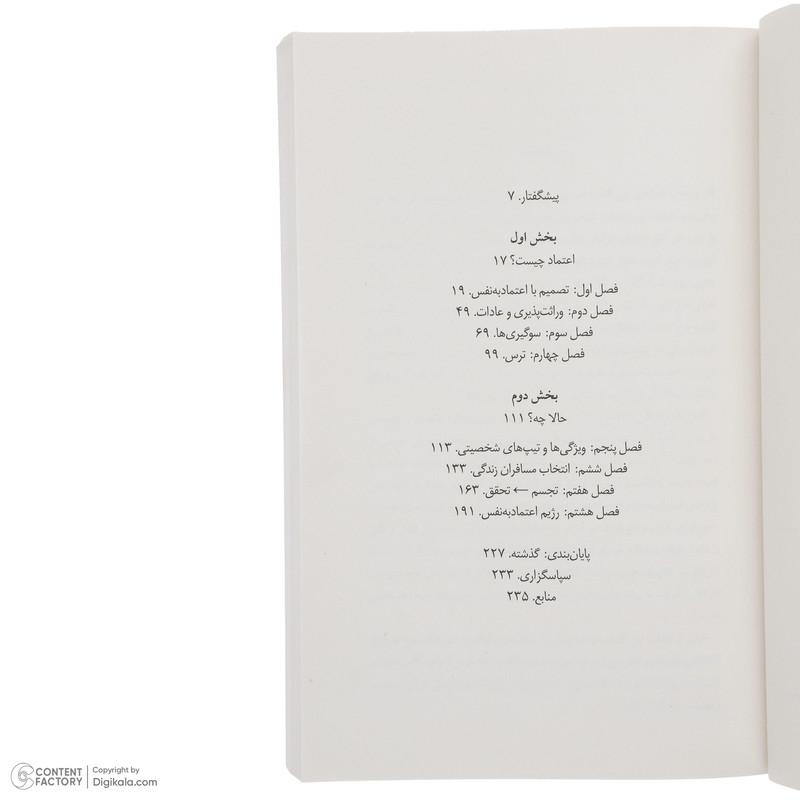 پیشگفتار. ۷
بخش اول
اعتماد چیست؟ ۱۷
فصل اول: تصمیم با اعتمادبه‌نفس. ۱۹
فصل دوم: وراثت‌پذیری و عادات. ۴۹
فصل سوم: سوگیری‌ها. ۶۹
فصل چهارم: ترس. ۹۹
بخش دوم
حالا چه؟ ۱۱۱
فصل پنجم: ویژگی‌ها و تیپ‌های شخصیتی. ۱۱۳
فصل ششم: انتخاب مسافران زندگی. ۱۳۳
فصل هفتم: تجسم ← تحقق. ۱۶۳
فصل هشتم: رژیم اعتمادبه‌نفس. ۱۹۱
پایان‌بندی: گذشته. ۲۲۷
سپاسگزاری. ۲۳۳
منابع. ۲۳۵
CONTENT FACTORY
Copyright by
Digikala.com